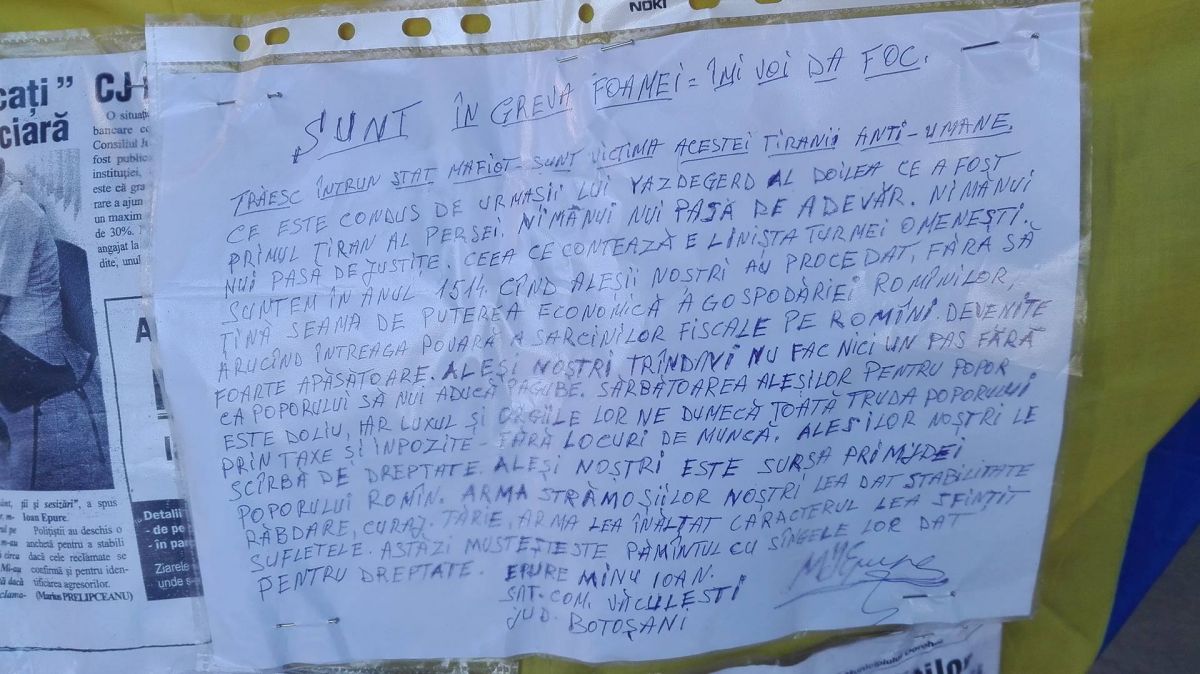 NOKI
cați”
ciară
CJ
O situaț
bancare co
Consiliul Ju
fost public
instituției,
este că gra
rare a ajun
un maxim
de 30%.
angajat la
dite, unul
SUNT ÎN GREVA FOAMEI = ÎMI VOI DA FOC.
TRĂESC ÎNTRUN ȘTAT MAFIOT - SUNT VICTIMA ACESTEI TIRANII ANTI-UMANE.
CE ESTE CONDUS DE URMAȘII LUI YAZDEGERD AL DOILEA CE A FOST
PRIMUL TIRAN AL PERSEI. NIMĂNUI NUI PASĂ DE ADEVĂR. NIMĂNUI
NUI PASĂ DE JUSTIȚE. CEEA CE CONTEAZĂ E LINIȘTA TURMEI OMENEȘTI.
SUNTEM ÎN ANUL 1514. CÎND ALEȘII NOȘTRI AU PROCEDAT, FĂRA SĂ
ȚINĂ SEAMA DE PUTEREA ECONOMICĂ A GOSPODĂRIEI ROMÎNILOR,
ARUCÎND ÎNTREAGA POVARĂ A SARCINILOR FISCALE PE ROMÎNI. DEVENITE
FOARTE APĂSĂTOARE. ALEȘI NOȘTRI TRÎNDAVI NU FAC NICI UN PAS FĂRĂ
CA POPORULUI SĂ NUI ADUCĂ PAGUBE. SĂRBĂTOAREA ALEȘILOR PENTRU POPOR
ESTE DOLIU, IAR LUXUL ȘI ORGIILE LOR NE DUMECĂ TOATĂ TRUDA POPORULUI
PRIN TAXE ȘI INPOZITE - FĂRĂ LOCURI DE MUNCĂ. ALEȘILOR NOȘTRI LE
SCÎRBĂ DE DREPTATE. ALEȘI NOȘTRI ESTE SURSA PRIMIJDEI
POPORULUI ROMÎN. ARMA STRĂMOȘIILOR NOȘTRI LEA DAT STABILITATE
RĂBDARE, CURAJ. TĂRIE. ARMA LEA ÎNĂLȚAT CARACTERUL LEA SFINȚIT
SUFLETELE. ASTĂZI MUSTEȘTEȘTE PĂMÎNTUL CU SÎNGELE LOR DAT
PENTRU DREPTATE.
EPURE MINU IOAN.
SAT. COM. VĂCULEȘTI
JUD. BOTOȘANI
ții și sesizări”, a spus
Ioan Epure.
Polițiștii au deschis o
anchetă pentru a stabili
dacă cele reclamate se
confirmă și pentru iden-
tificarea agresorilor.
(Marius PRELIPCEANU)
Detalii
- de pe
- în par
Ziarele
unde s-